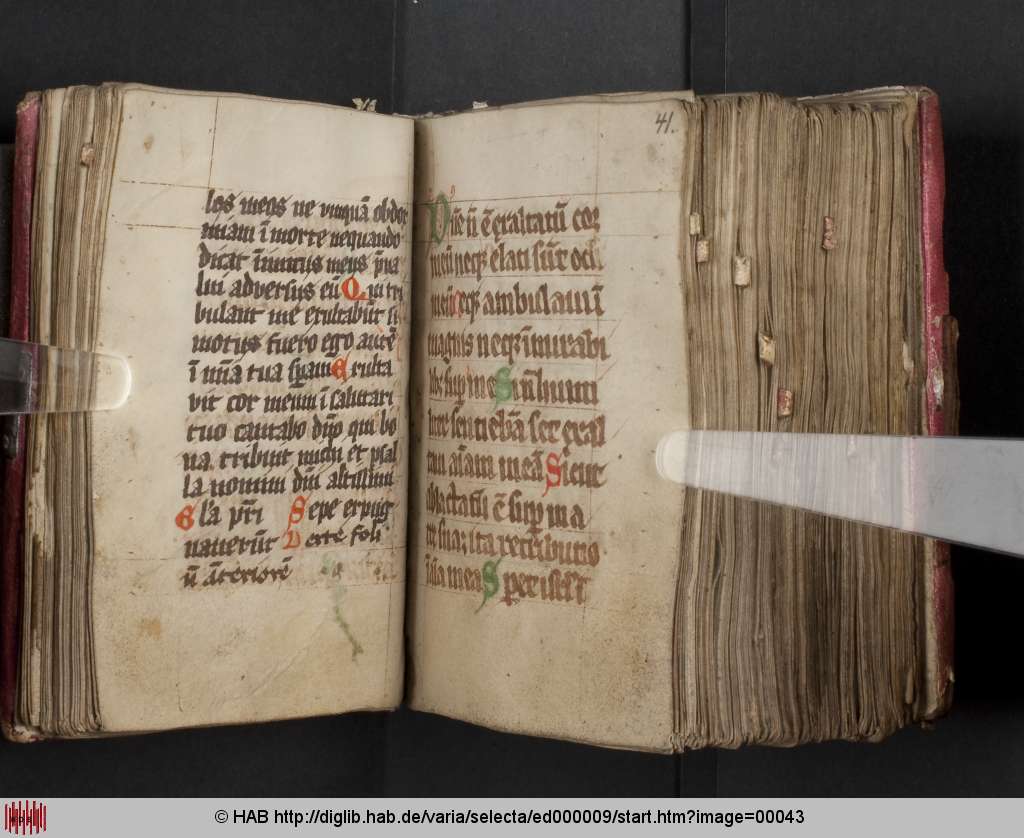 los meos ne vnquā obdor
miam ī morte nequando
dicat īimicus meus p̄ua
lui adversus eū Qui tri
bulant me exultabūt si
motus fuero ego autē
ī mīa tua sperauī Exulta
vit cor meum ī salutari
tuo cantabo dn̄o qui bo
na tribuit michi et psal
la nomini dn̄i altissimi
Gl'a pr̄i Sepe expug
nauerūt Verte foli
ū āteriorē
41.
Dn̄e nō ē exaltatū cor
meū neqz elati sūt oc̄i
mei Neqz ambulaui ī
magnis neqz ī mirabi
lib; sup me Si nō humi
liter sentiebā set exal
taui aīam meā Sicut
ablactat' ē sup ma
tre sua: ita retributio
ī aīa mea Speret isr̄l
© HAB http://diglib.hab.de/varia/selecta/ed000009/start.htm?image=00043